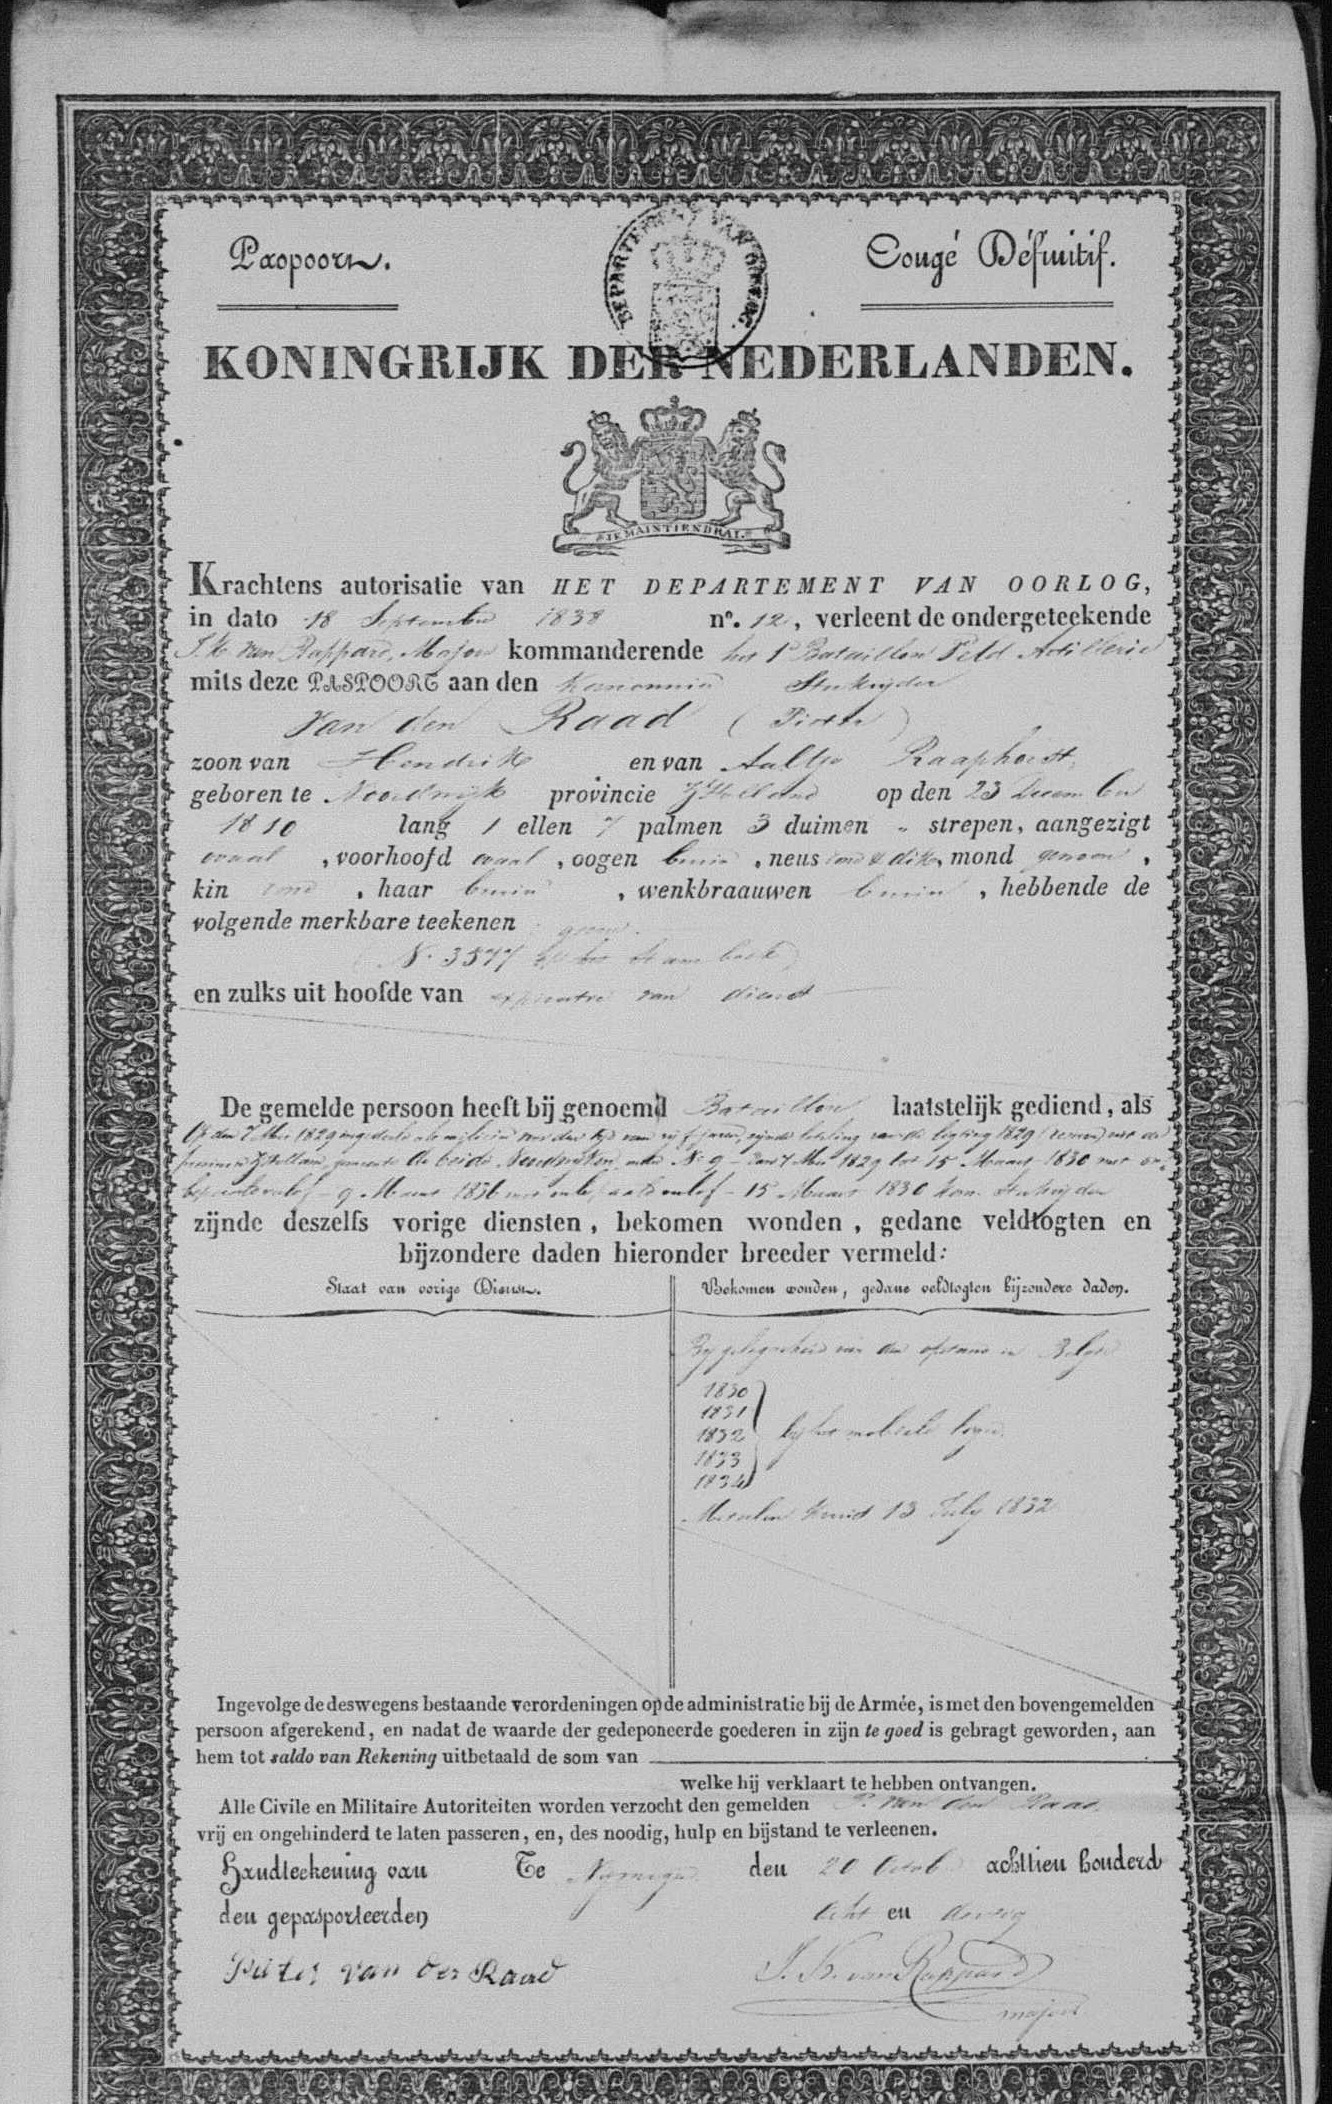 Paspoort.
Congé Définitif.
DEPARTEMENT VAN OORLOG.
KONINGRIJK DER NEDERLANDEN.
JE MAINTIENDRAI.
Krachtens autorisatie van HET DEPARTEMENT VAN OORLOG,
in dato 18 September 1838 no. 12, verleent de ondergeteekende
van Rappard, Major kommanderende het 1e Bataillon Veld Artillerie
mits deze PASPOORT aan den Kanonnier Stukrijder
Van den Raad (Pieter)
zoon van Hendrik en van Aaltje Raaphorst,
geboren te Noordwijk provincie Z Holland op den 23 December
1810 lang 1 ellen 7 palmen 3 duimen „ strepen, aangezigt
ovaal, voorhoofd ovaal, oogen bruin, neus rond & dik, mond gewoon,
kin rond, haar bruin, wenkbraauwen bruin, hebbende de
volgende merkbare teekenen geene.
(N. 3577 op het stamboek)
en zulks uit hoofde van expiratie van dienst
De gemelde persoon heeft bij genoemd Bataillon laatstelijk gediend, als
Op den 7 Mei 1829 ingedeeld als milicien voor den tijd van vijf jaren, zijnde loteling van de ligting 1829 uit de
provincie Z Holland, gemeente de beide Noordwijken onder N. 9 - Den 7 Mei 1829 tot 15 Maart 1830 met on
bepaald verlof - 9 Maart 1836 met onbepaald verlof - 15 Maart 1830 Kan. Stukrijder
zijnde deszelfs vorige diensten, bekomen wonden, gedane veldtogten en
bijzondere daden hieronder breeder vermeld:
Staat van vorige Dienst.
Bekomen wonden, gedane veldtogten bijzondere daden.
Bij gelegenheid van den opstand in België
1830
1831
1832 bij het mobiele leger.
1833
1834
Metalen Kruis 13 July 1832
Ingevolge de deswegens bestaande verordeningen op de administratie bij de Armée, is met den bovengemelden
persoon afgerekend, en nadat de waarde der gedeponeerde goederen in zijn te goed is gebragt geworden, aan
hem tot saldo van Rekening uitbetaald de som van
welke hij verklaart te hebben ontvangen.
Alle Civile en Militaire Autoriteiten worden verzocht den gemelden P. van den Raad
vrij en ongehinderd te laten passeren, en, des noodig, hulp en bijstand te verleenen.
Handteekening van Te Nijmegen den 20 Octob. achttien honderd
den gepasporteerden acht en dertig
Pieter van der Raad
J. K. van Rappard
major